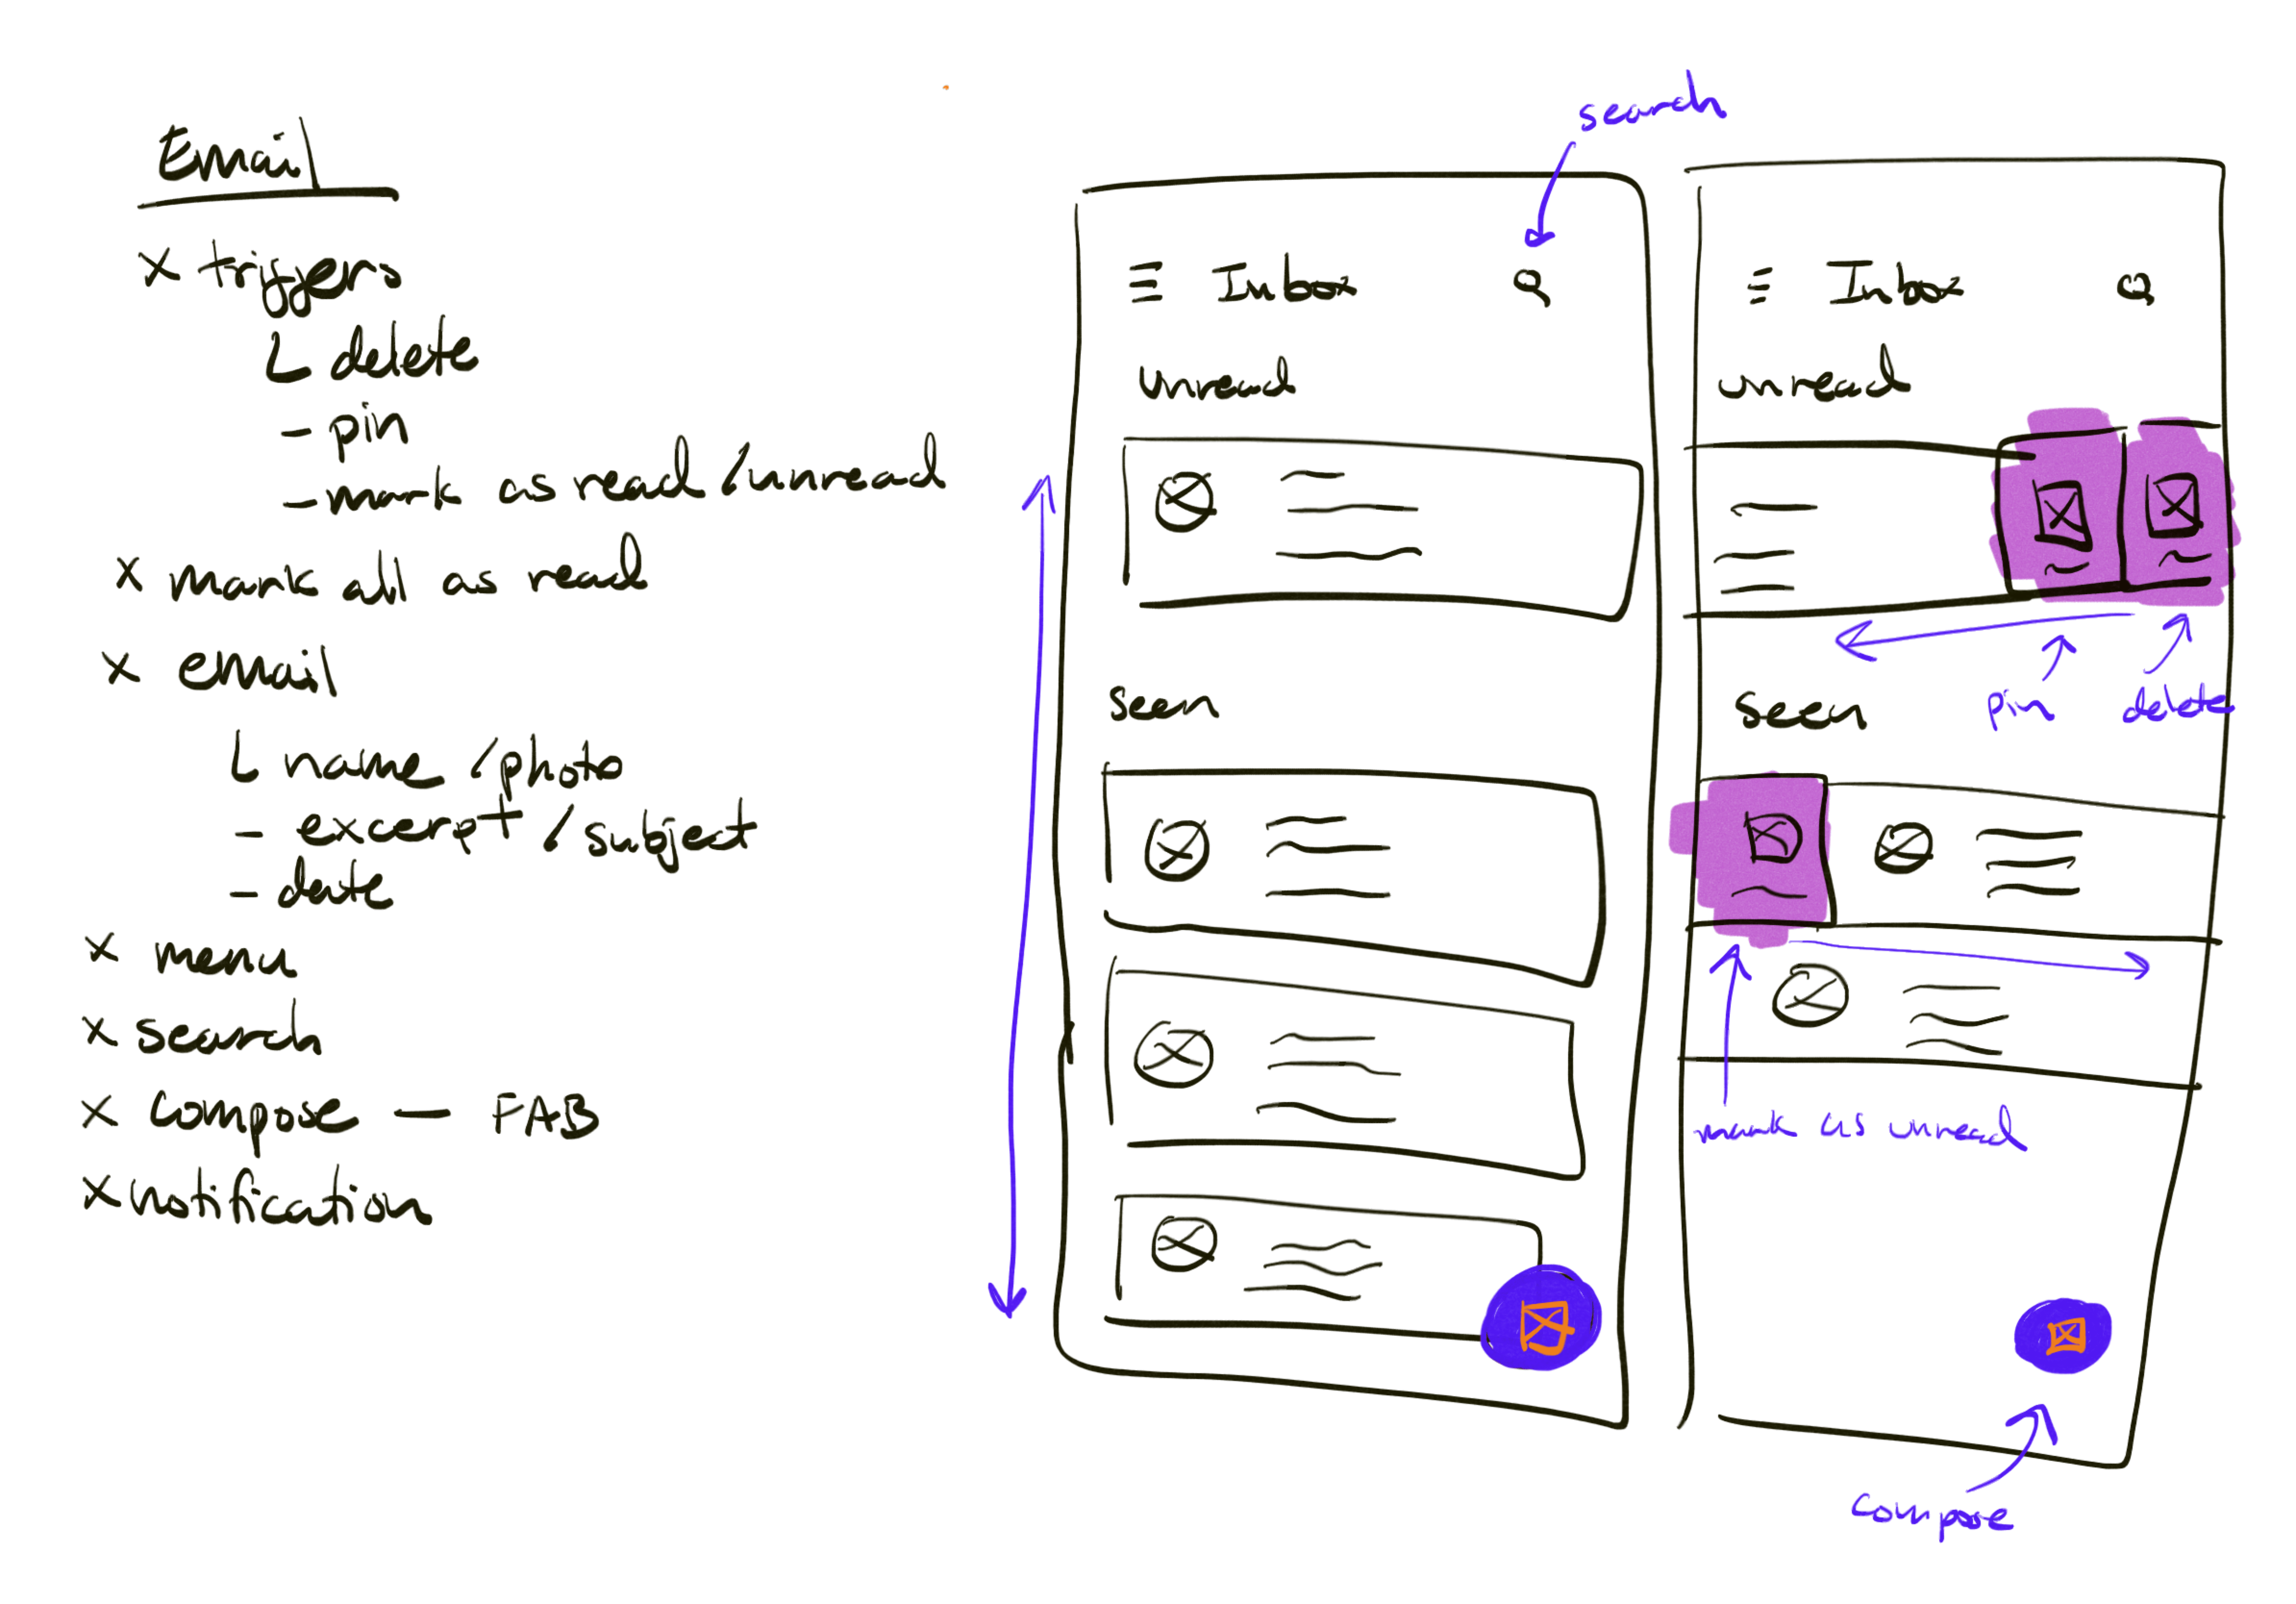 Email
x triggers
L delete
- pin
- mark as read / unread
x mark all as read
x email
L name / photo
- excerpt / subject
- date
x menu
x search
x compose — FAB
x notification
search
Inbox
unread
seen
Inbox
unread
pin
delete
seen
mark as unread
compose